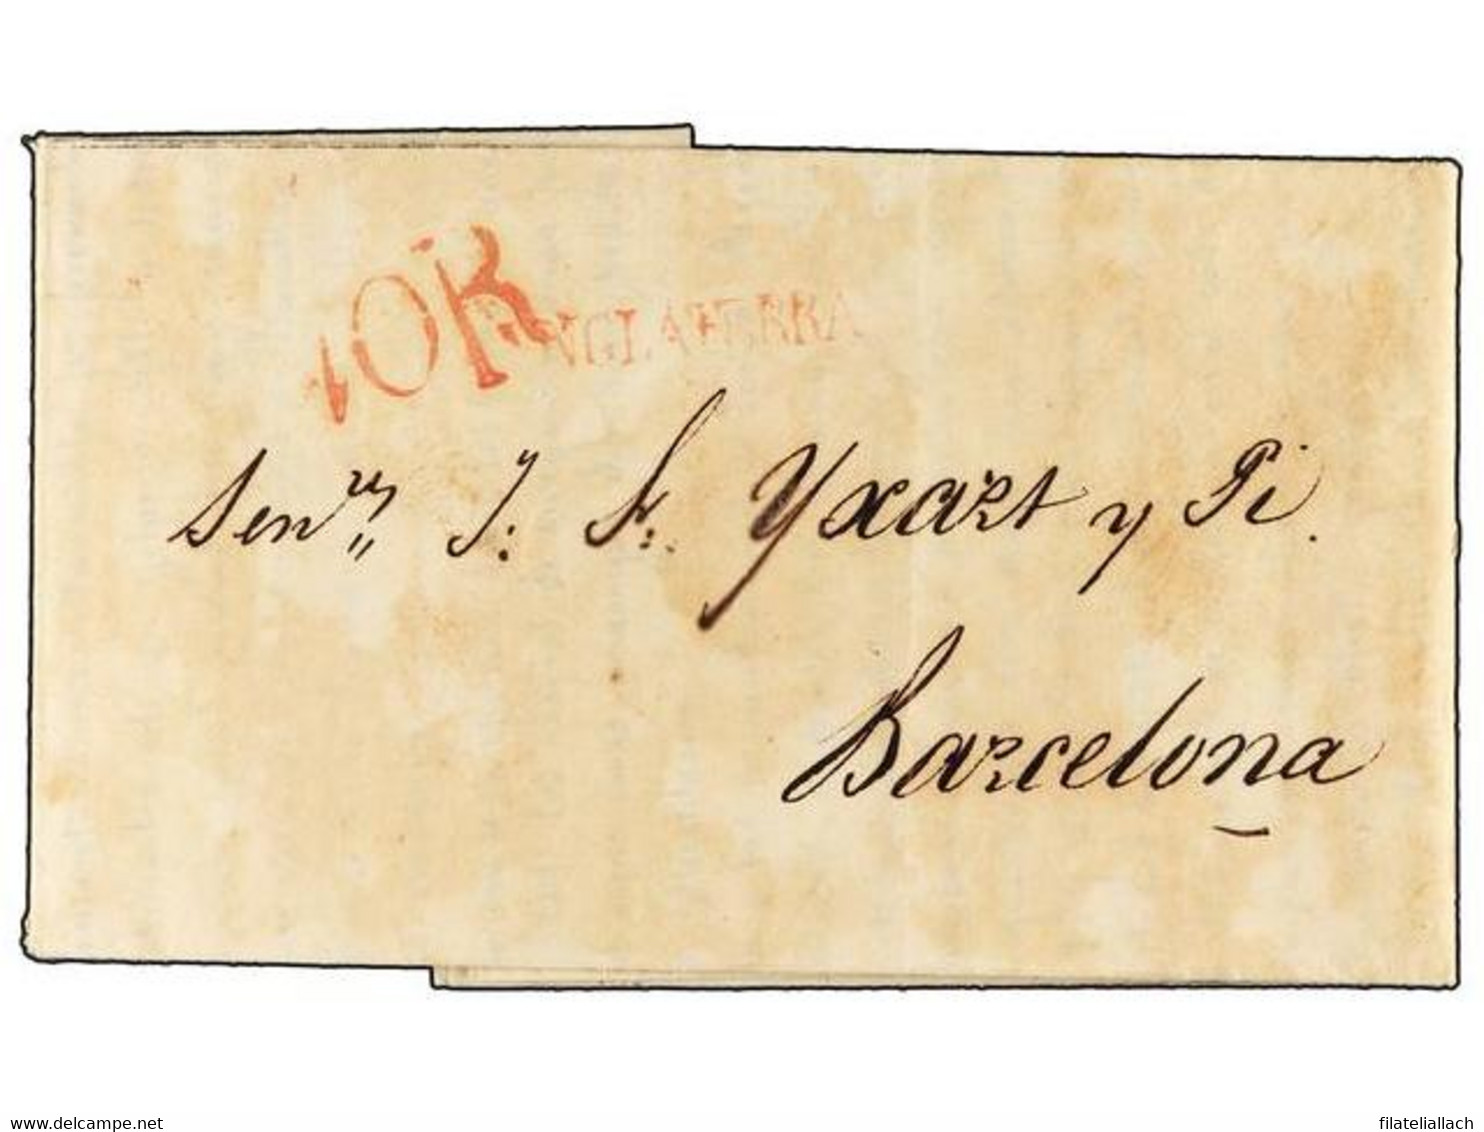 10R
INGLATERRA
Senres J: F: Yxart y Pi.
Barcelona
www.delcampe.net
filateliallach